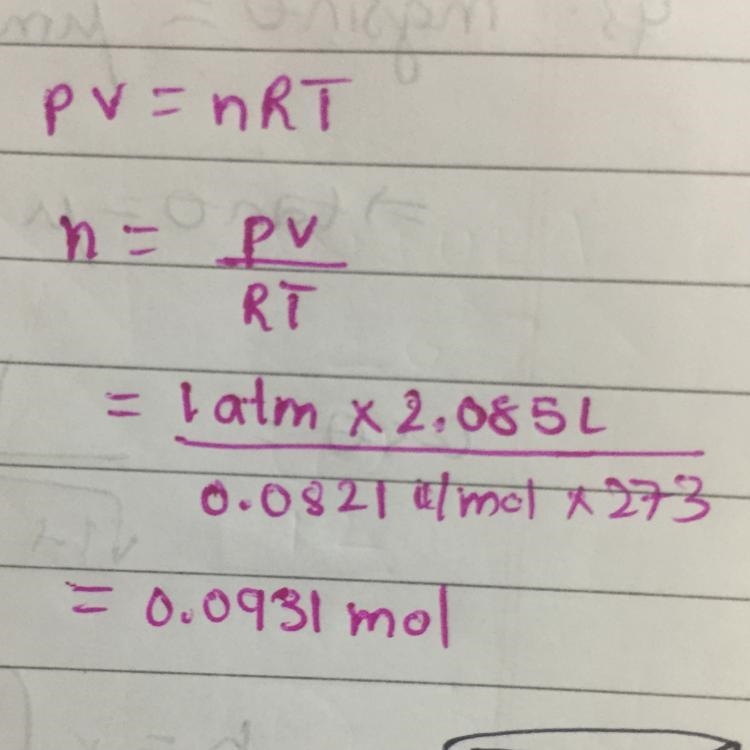 PV = nRT
n = PV
RT
= 1 atm x 2.085 L
0.0821 /mol x 273
= 0.0931 mol